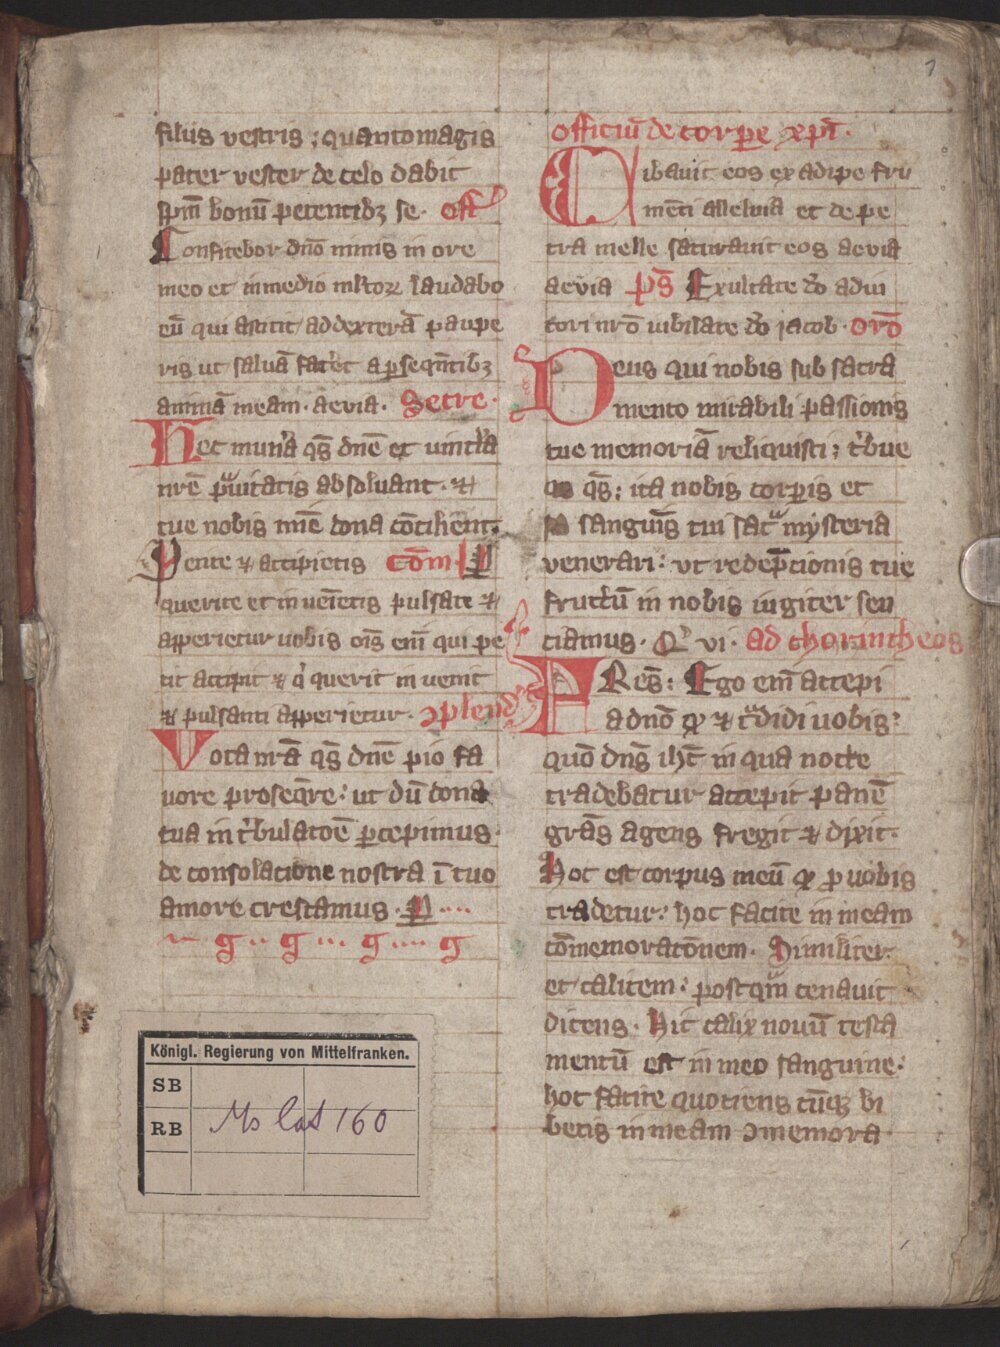 filiis vestris ; quanto magis
pater vester de celo dabit
sp̄m bonū petentibꝫ se. off̄
Confitebor dn̄o nimis in ore
meo et in medio mltoꝝ laudabo
eū qui astitit ad dexterā paupe
ris ut salvā fac͛et a ꝑseqn̄tibꝫ
animā meam. aevia. Secre.
Hec mun̄a qs̄ dn̄e et vincl̄a
nr̄e pͣvitatis absolvant. ⁊
tue nobis mīe dona cōcilient.
Petite ⁊ accipietis cōm
querite et invenietis pulsate ⁊
apperietur vobis oīs eni qui pe
tit accipit ⁊ q̇ querit invenit
⁊ pulsanti apperietur. ꝯplend̄
Vota nr̄a qs̄ dn̄e pio fa
vore proseqr̄e: ut dū dona
tua in tͥbulatōe ꝑcepimus.
de consolacione nostra ī tuo
amore crescamus.
g g g g
officiū de corꝑe xp̄i.
Cibavit eos ex adipe fru
mēti alleluia et de pe
tra melle saturavit eos aevia
aevia ps̄ Exultate d̄o adiu
tori nr̄o iubilate d̄o iacob. orō
Deus qui nobis sub sacra
mento mirabili passionis
tue memoriā reliquisti; tͥbue
qs̄; ita nobis corꝑis et
sanguīs tui sacͣ mysteria
venerari: ut redēpcionis tue
fructū in nobis iugiter sen
ciamus. Qͥ vi. ad chorintheos
FRes̄: Ego eni accepi
a dn̄o qͦ ⁊ tͣdidi vobis:
quō dn̄s ih̄c in qua nocte
tradebatur accepit panē
grās agens fregit ⁊ dixit:
Hoc est corpus meū qͦ ꝓ vobis
tradetur: hoc facite in meam
cōmemoratōnem. Similiter
et calicem: postqͣm cenavit
dicens. Hic calix novū testa
mentū est in meo sanguine:
hoc facite quociens cūqꝫ bi
betis in meam ꝯmemora
Königl. Regierung von Mittelfranken.
SB
RB Ms lat 160